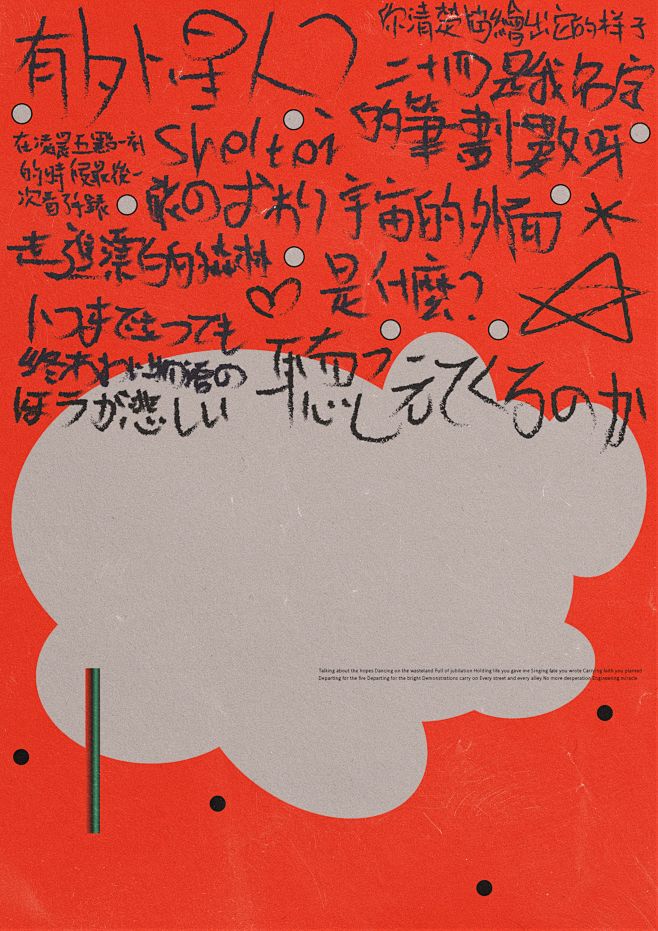 有外星人?
你清楚固繪出它的样子
二十四是我名字
的筆劃數呀
在凌晨五點一刻
的時候最後一
次看
Shelter
のずれり
宇宙的外面
走進
的森林
是什麼?
いつまでたっても
終われない物語の
ほうが悲しい
聴こえてくるのか
Talking about the hopes Dancing on the wasteland Full of jubilation Holding life you gave me Singing fate you wrote Carrying faith you planted
Departing for the fire Departing for the bright Demonstrations carry on Every street and every alley No more desperation Engineering miracle